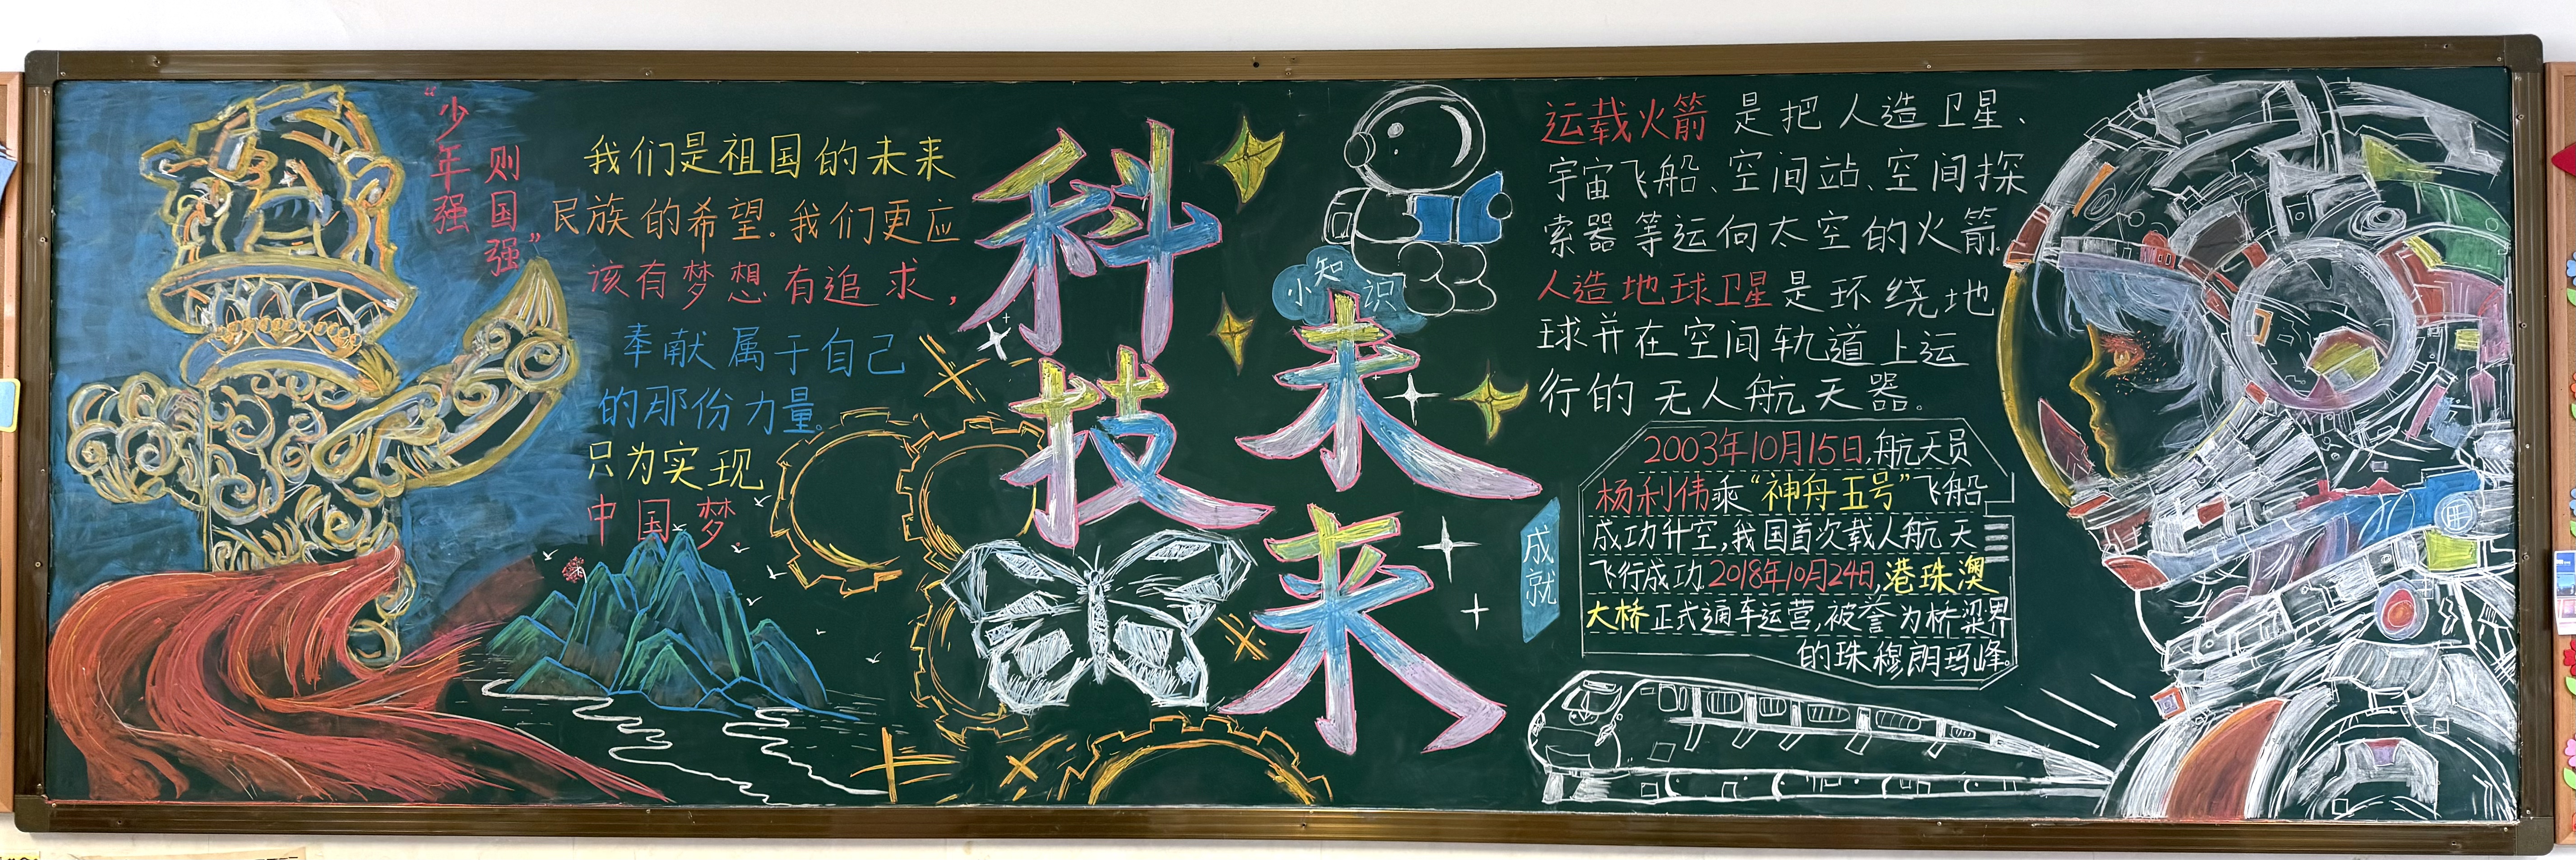 “少年强
则国强”
我们是祖国的未来
民族的希望。我们更应
该有梦想有追求，
奉献属于自己
的那份力量。
只为实现
中国梦
科技
未来
小知识
运载火箭是把人造卫星、
宇宙飞船、空间站、空间探
索器等运向太空的火箭.
人造地球卫星是环绕地
球并在空间轨道上运
行的无人航天器。
成就
2003年10月15日,航天员
杨利伟乘“神舟五号”飞船
成功升空,我国首次载人航天
飞行成功.2018年10月24日,港珠澳
大桥正式通车运营,被誉为桥梁界
的珠穆朗玛峰。